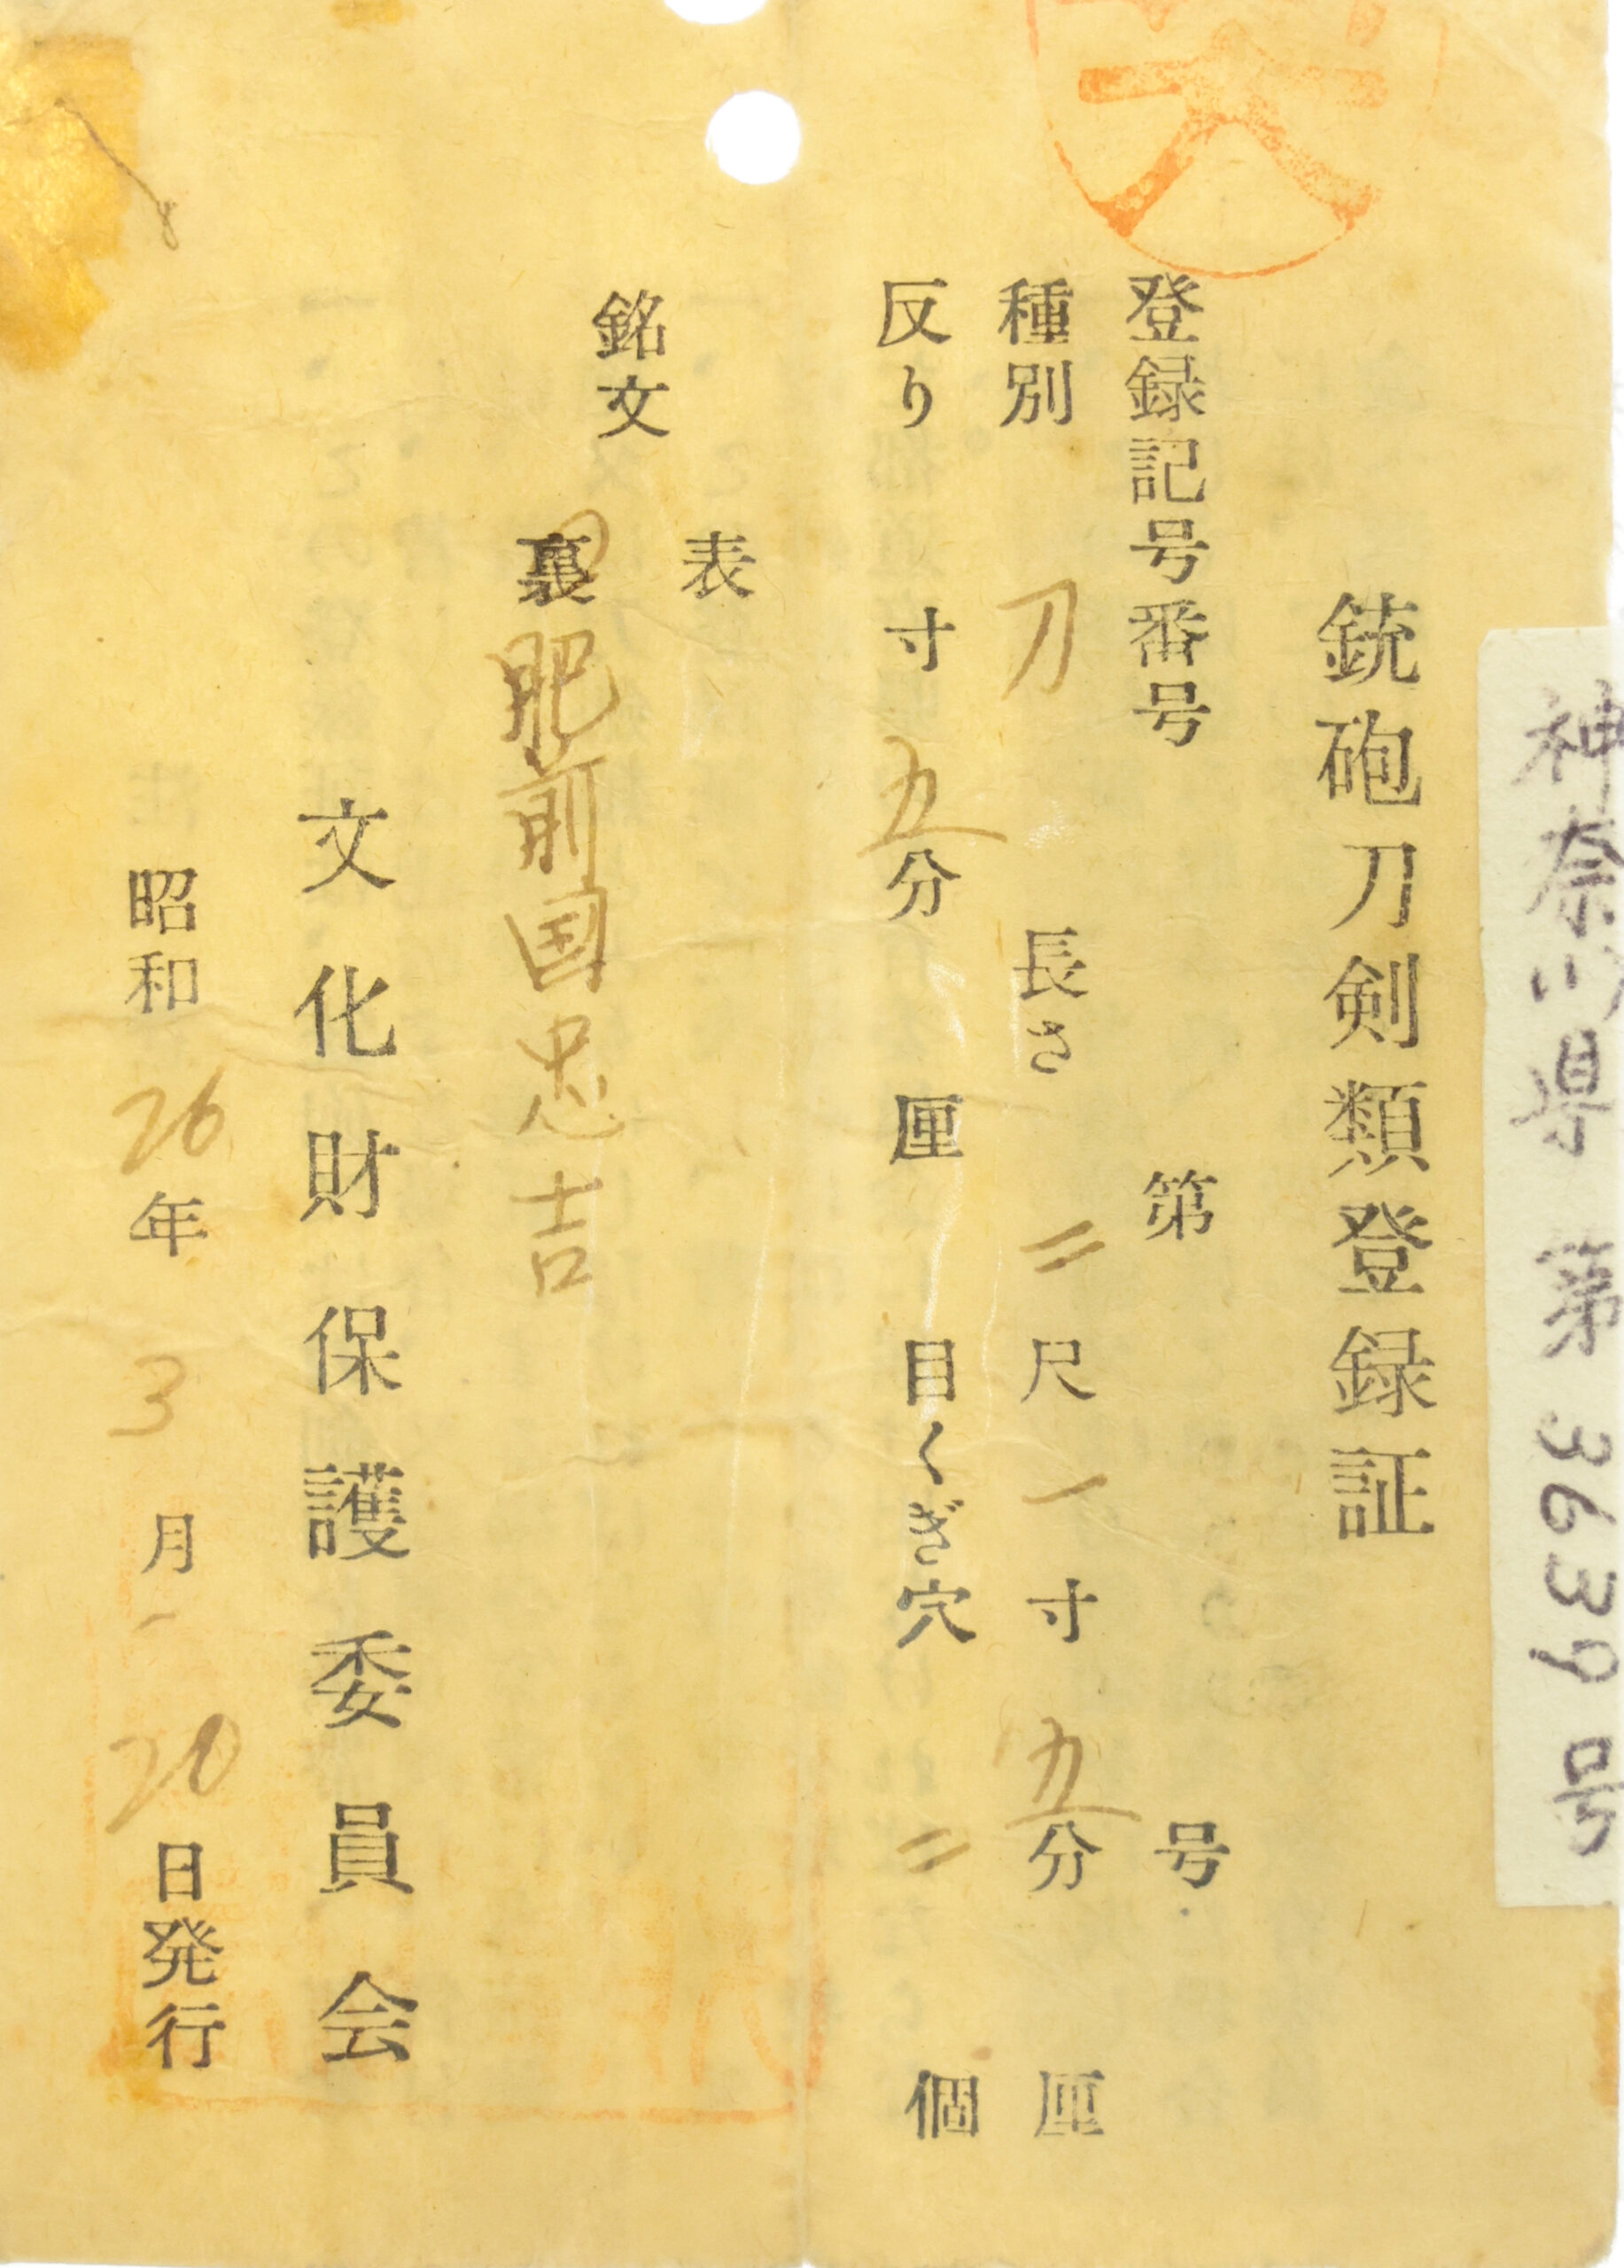 神奈川県 第36939号
銃砲刀剣類登録証
登録記号番号 第 号
種別 刀 長さ 二尺一寸五分 厘
反り 寸五分 厘 目くぎ穴 二 個
銘文
表
裏 肥前国忠吉
文化財保護委員会
昭和26年3月20日発行